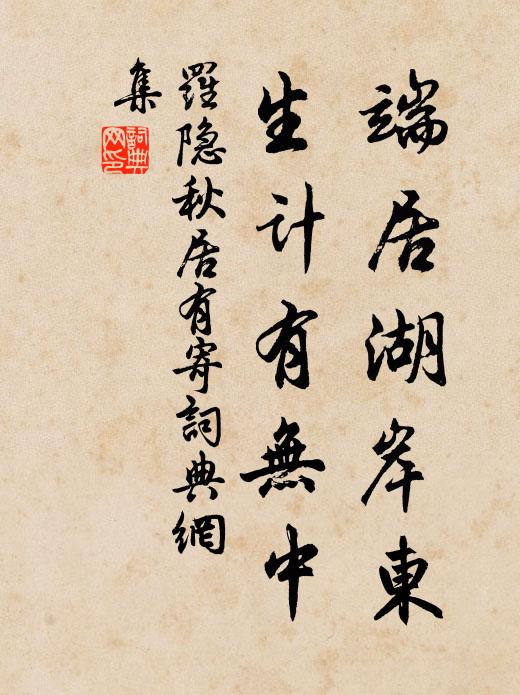 端居湖岸東
生計有無中
羅隐秋居有寄詞典網
集
詞典
网印